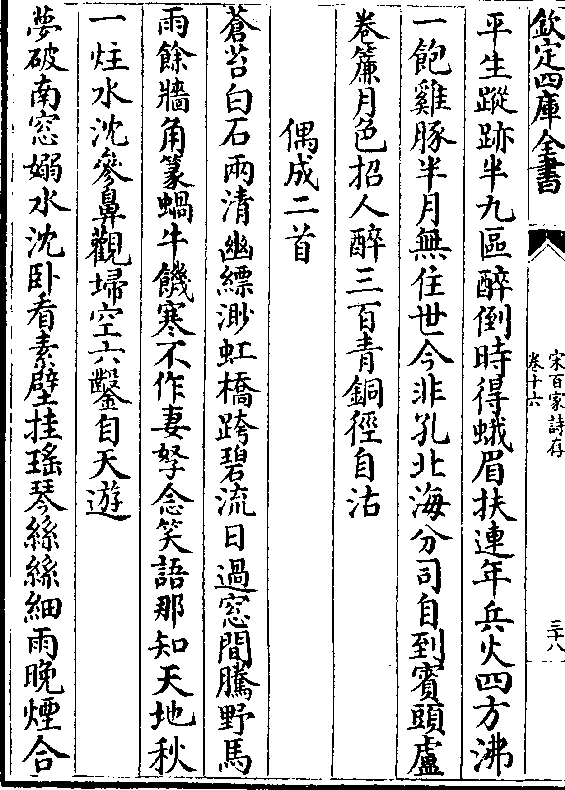 欽定四庫全書
宋百家詩存
卷十六
三十八
平生蹤跡半九區醉倒時得蛾眉扶連年兵火四方沸
一飽雞豚半月無住世今非孔北海分司自到賓頭盧
卷簾月色招人醉三百青銅徑自沽
偶成二首
蒼苔白石兩清幽縹渺虹橋跨碧流日過窓間騰野馬
雨餘牆角篆蝸牛饑寒不作妻孥念笑語那知天地秋
一炷水沈參鼻觀埽空六鑿自天遊
夢破南窓嫋水沈卧看素壁挂瑤琴絲絲細雨晚煙合